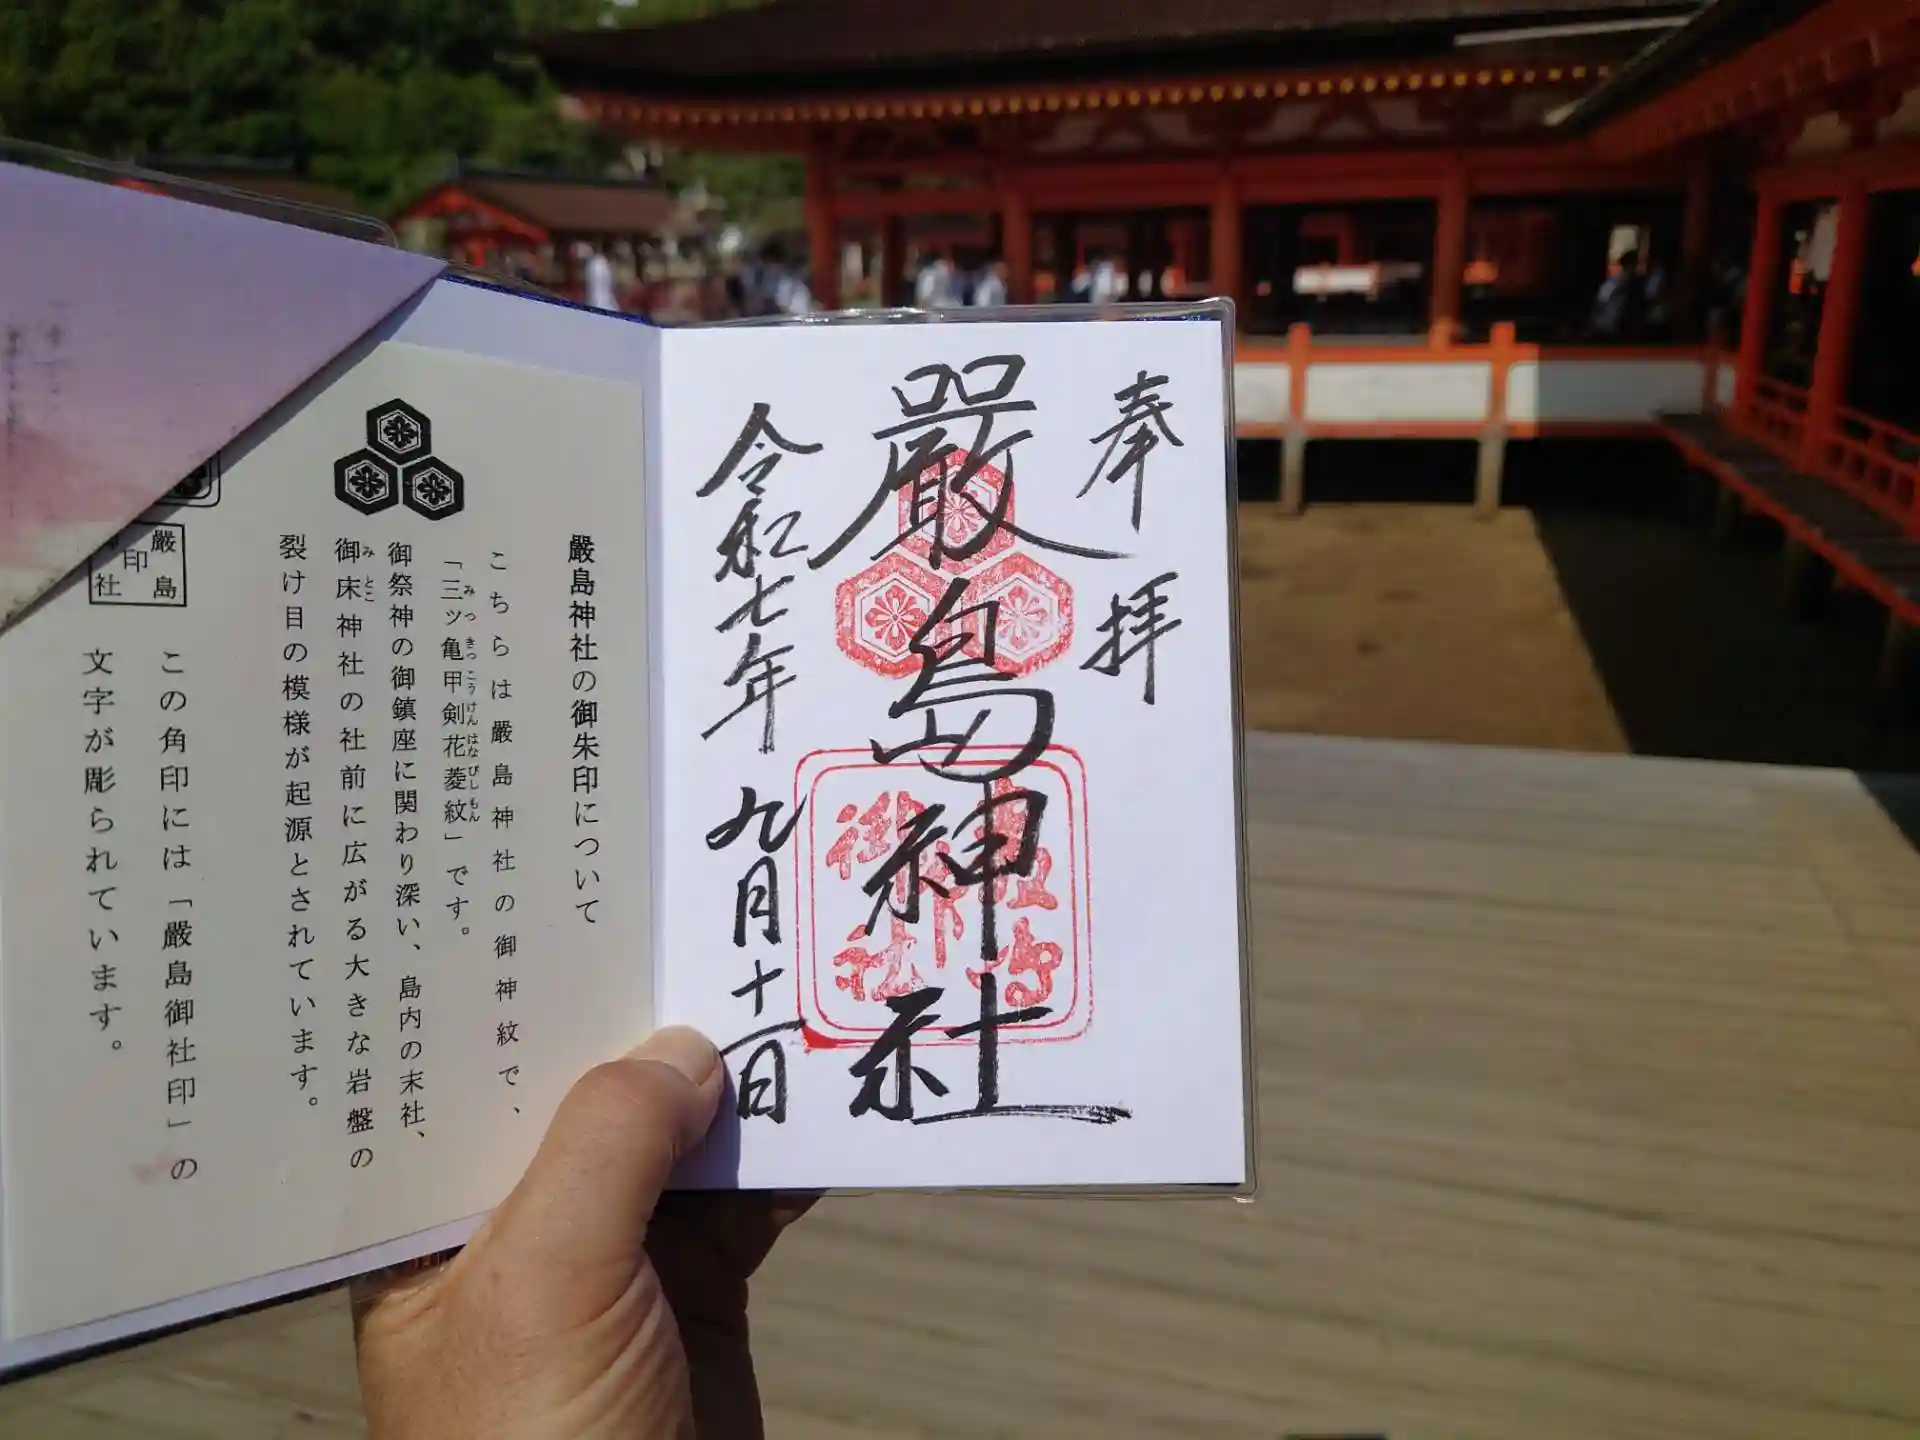 奉拝
嚴島神社
令和七年九月十一日
嚴島神社の御朱印について
こちらは嚴島神社の御神紋で、
「三ッ亀甲剣花菱紋」です。
みつきっこうけんはなびしもん
御祭神の御鎮座に関わり深い、島内の末社、
御床神社の社前に広がる大きな岩盤の
みとこ
裂け目の模様が起源とされています。
嚴島
印
社
この角印には「嚴島御社印」の
文字が彫られています。